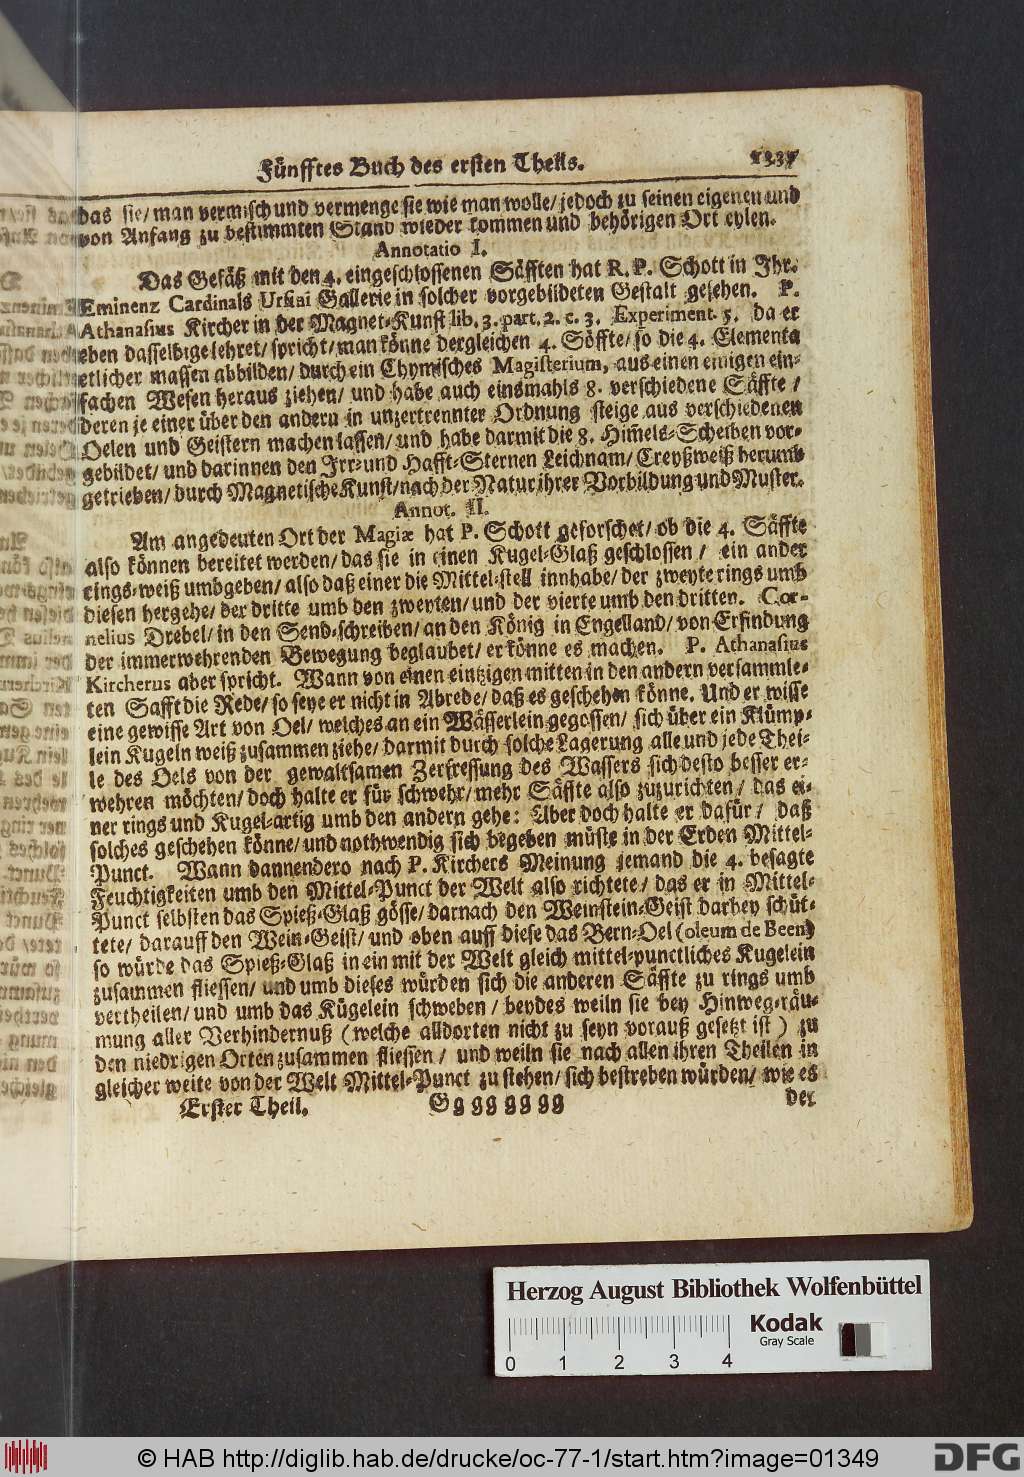 Fünfftes Buch des ersten Theils. 1337
das sie/ man vermisch und vermenge sie wie man wolle/ jedoch zu seinen eigenen und
von Anfang zu bestimmten Stand wieder kommen und behörigen Ort eylen.
Annotatio I.
Das Gefäß mit den 4. eingeschlossenen Säfften hat R. P. Schott in Ihr.
Eminenz Cardinals Ursini Gallerie in solcher vorgebildeten Gestalt gesehen. P.
Athanasius Kircher in der Magnet-Kunst lib. 3. part. 2. c. 3. Experiment. 5. da er
eben dasselbige lehret/ spricht/ man könne dergleichen 4. Söffte/ so die 4. Elementa
etlicher massen abbilden/ durch ein Chymisches Magisterium, aus einen einigen ein-
fachen Wesen heraus ziehen/ und habe auch einsmahls 8. verschiedene Säffte /
deren je einer über den andern in unzertrennter Ordnung steige aus verschiedenen
Oelen und Geistern machen lassen/ und habe darmit die 8. Him̃els-Scheiben vor-
gebildet/ und darinnen den Irr- und Hafft-Sternen Leichnam/ Creyßweiß herumb
getrieben/ durch Magnetische Kunst/ nach der Natur ihrer Vorbildung und Muster.
Annot. II.
Am angedeuten Ort der Magiæ hat P. Schott geforschet/ ob die 4. Säffte
also können bereitet werden/ das sie in einen Kugel-Glaß geschlossen / ein ander
rings-weiß umbgeben/ also daß einer die Mittel-stell innhabe/ der zweyte rings umb
diesen hergehe/ der dritte umb den zweyten/ und der vierte umb den dritten. Cor-
nelius Drebel/ in den Send-schreiben/ an den König in Engelland/ von Erfindung
der immerwehrenden Bewegung beglaubet/ er könne es machen. P. Athanasius
Kircherus aber spricht. Wann von einen eintzigen mitten in den andern versammle-
ten Safft die Rede/ so seye er nicht in Abrede/ daß es geschehen könne. Und er wisse
eine gewisse Art von Oel/ welches an ein Wässerlein gegossen/ sich über ein Klümp-
lein Kugeln weiß zusammen ziehe/ darmit durch solche Lagerung alle und jede Thei-
le des Oels von der gewaltsamen Zerfressung des Wassers sich desto besser er-
wehren möchten/ doch halte er für schwehr/ mehr Säffte also zuzurichten/ das ei-
ner rings und Kugel-artig umb den andern gehe: Aber doch halte er dafür / daß
solches geschehen könne/ und nothwendig sich begeben müste in der Erden Mittel-
Punct. Wann dannendero nach P. Kirchers Meinung jemand die 4. besagte
Feuchtigkeiten umb den Mittel-Punct der Welt also richtete/ das er in Mittel-
Punct selbsten das Spieß-Glaß gösse/ darnach den Weinstein-Geist darbey schüt-
tete/ darauff den Wein-Geist/ und oben auff diese das Bern-Oel (oleum de Been)
so würde das Spieß-Glaß in ein mit der Welt gleich mittel-punctliches Kugelein
zusammen fliessen/ und umb dieses würden sich die anderen Säffte zu rings umb
vertheilen/ und umb das Kügelein schweben / beydes weiln sie bey Hinweg-räu-
mung aller Verhindernuß (welche alldorten nicht zu seyn vorauß gesetzt ist) zu
den niedrigen Orten zusammen fliessen / und weiln sie nach allen ihren Theilen in
gleicher weite von der Welt Mittel-Punct zu stehen/ sich bestreben würden/ wie es
Erster Theil. Gg gg gg gg der
Herzog August Bibliothek Wolfenbüttel
Kodak
Gray Scale
0 1 2 3 4
© HAB http://diglib.hab.de/drucke/oc-77-1/start.htm?image=01349
DFG